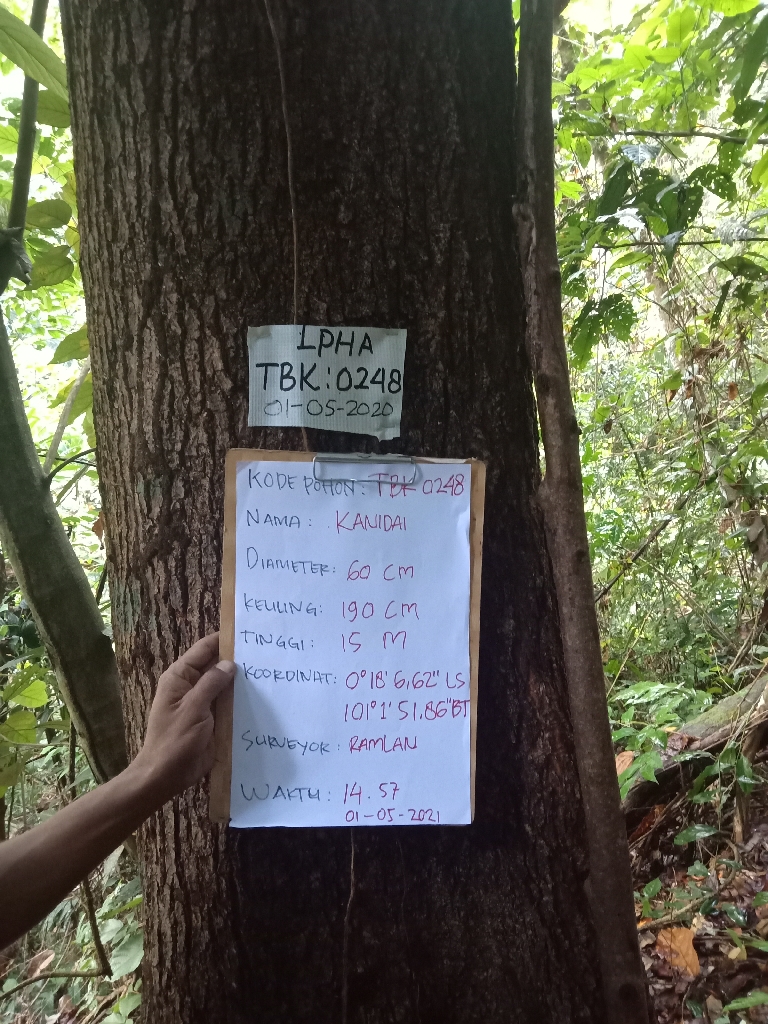 LPHA
TBK:0248
01-05-2020
KODE POHON: TBK 0248
NAMA: KANIDAI
DIAMETER: 60 CM
KELILING: 190 CM
TINGGI: 15 M
KOORDINAT: 0°18'6,62" LS
101°1'51,86" BT
SURVEYOR: RAMLAN
WAKTU: 14.57
01-05-2021